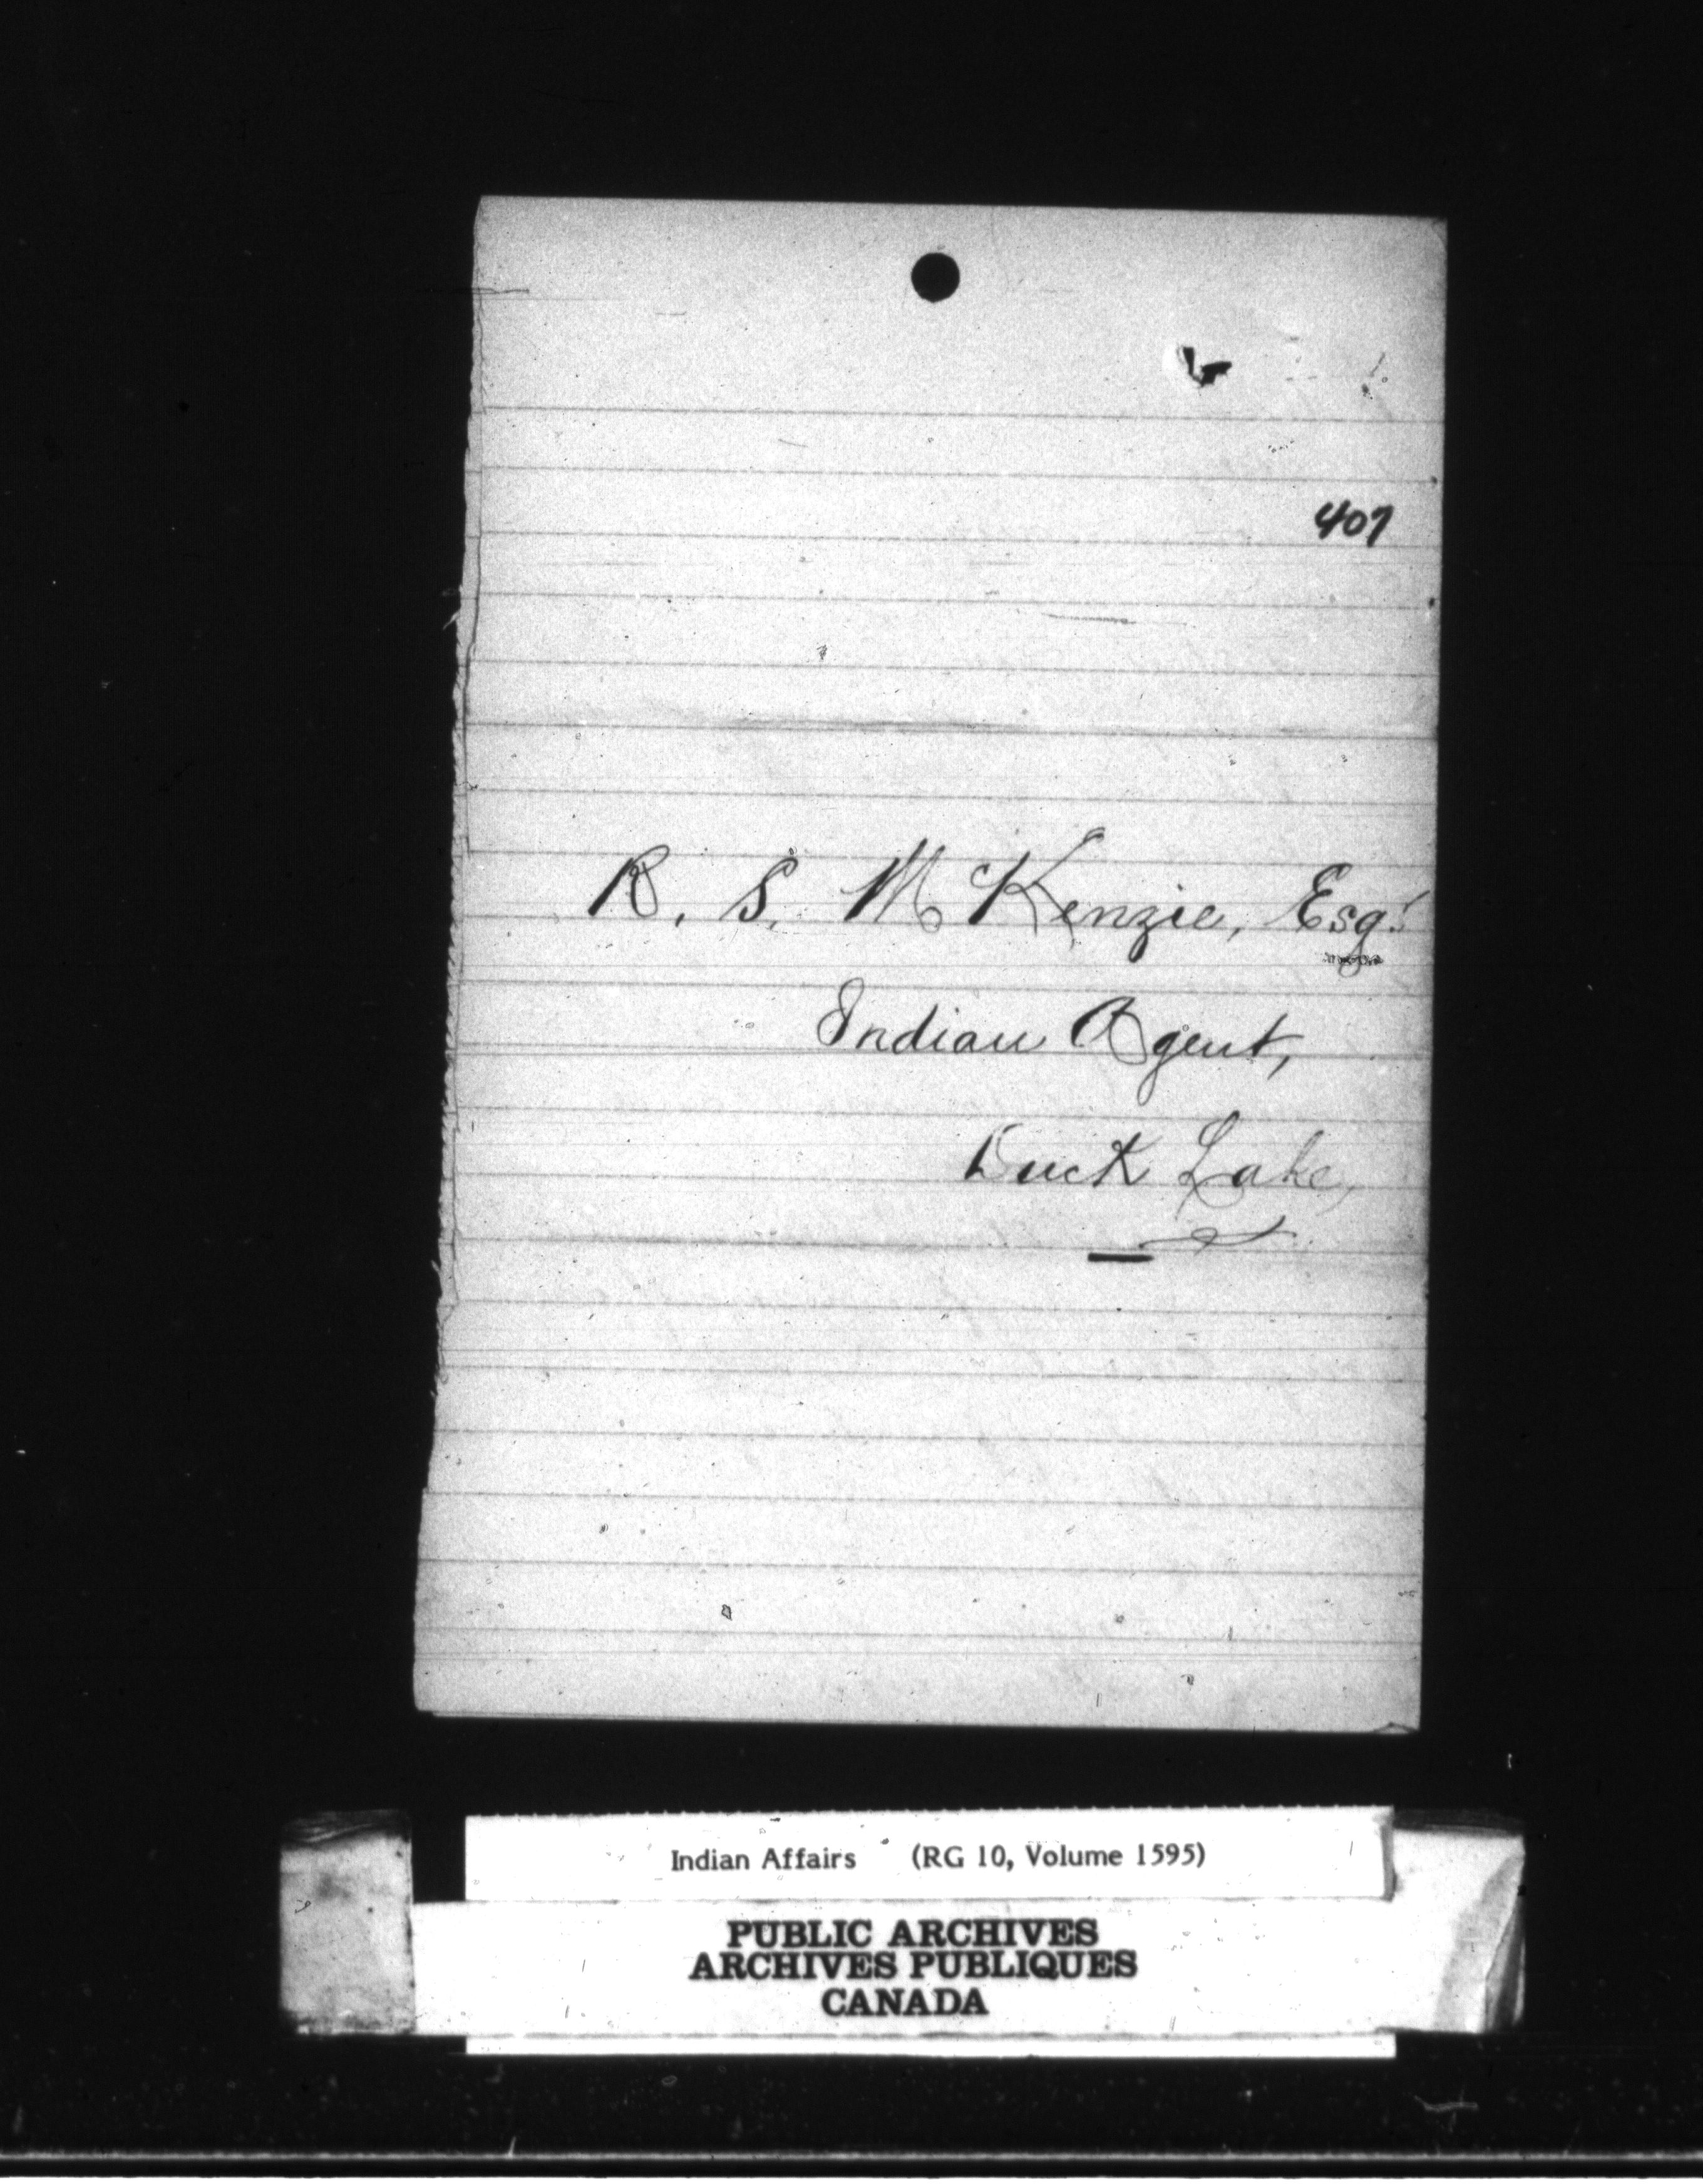 407
R. S. McKenzie, Esq.
Indian Agent,
Duck Lake,
Indian Affairs (RG 10, Volume 1595)
PUBLIC ARCHIVES
ARCHIVES PUBLIQUES
CANADA